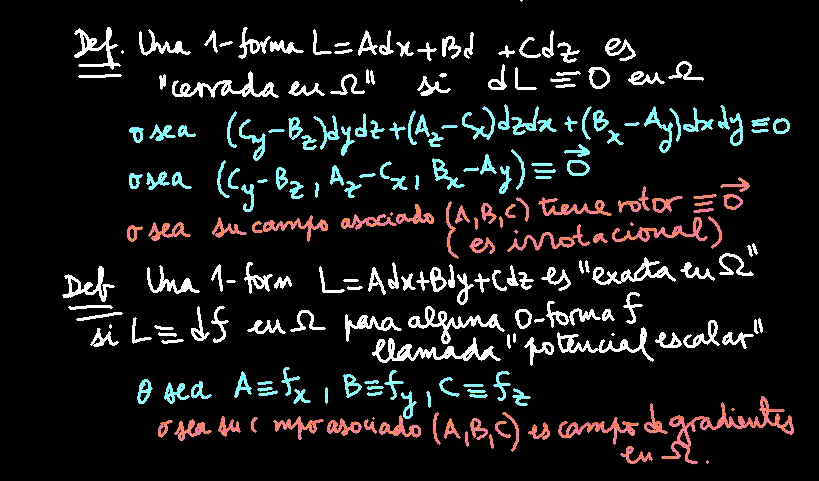 Def. Una 1-forma L=Adx+Bd +Cdz es
"cerrada en Ω" si dL ≡ 0 en Ω
o sea (C_y-B_z)dydz+(A_z-C_x)dzdx+(B_x-A_y)dxdy≡0
o sea (C_y-B_z, A_z-C_x, B_x-A_y)≡0⃗
o sea su campo asociado (A,B,C) tiene rotor ≡0⃗
(es irrotacional)
Def Una 1-form L=Adx+Bdy+Cdz es "exacta en Ω"
si L≡df en Ω para alguna 0-forma f
llamada "potencial escalar"
O sea A≡f_x, B≡f_y, C≡f_z
o sea su c mpo asociado (A,B,C) es campo de gradientes
en Ω.